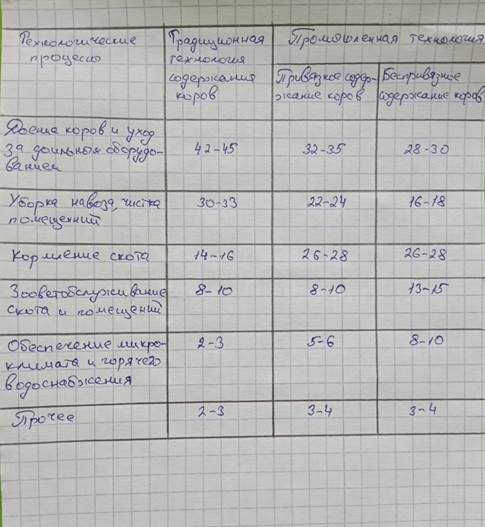 Технологические процессы
Традиционная технология содержания коров
Промышленная технология
Привязное содер-
жание коров
Беспривязное
содержание коров
Доение коров и уход
за доильным оборудо-
ванием
42-45
32-35
28-30
Уборка навоза, чистка
помещений
30-33
22-24
16-18
Кормление скота
14-16
26-28
26-28
Зооветобслуживание
скота и помещений
8-10
8-10
13-15
Обеспечение микро-
климата и горячего
водоснабжения
2-3
5-6
8-10
Прочее
2-3
3-4
3-4